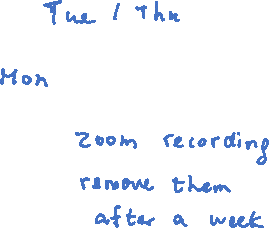 Tue / Thu
Mon
Zoom recording
remove them
after a week